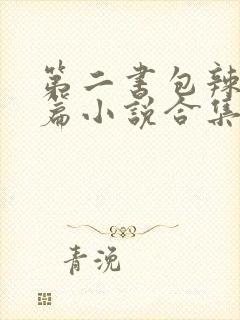 第二书包辣
篇小说合集
青浼